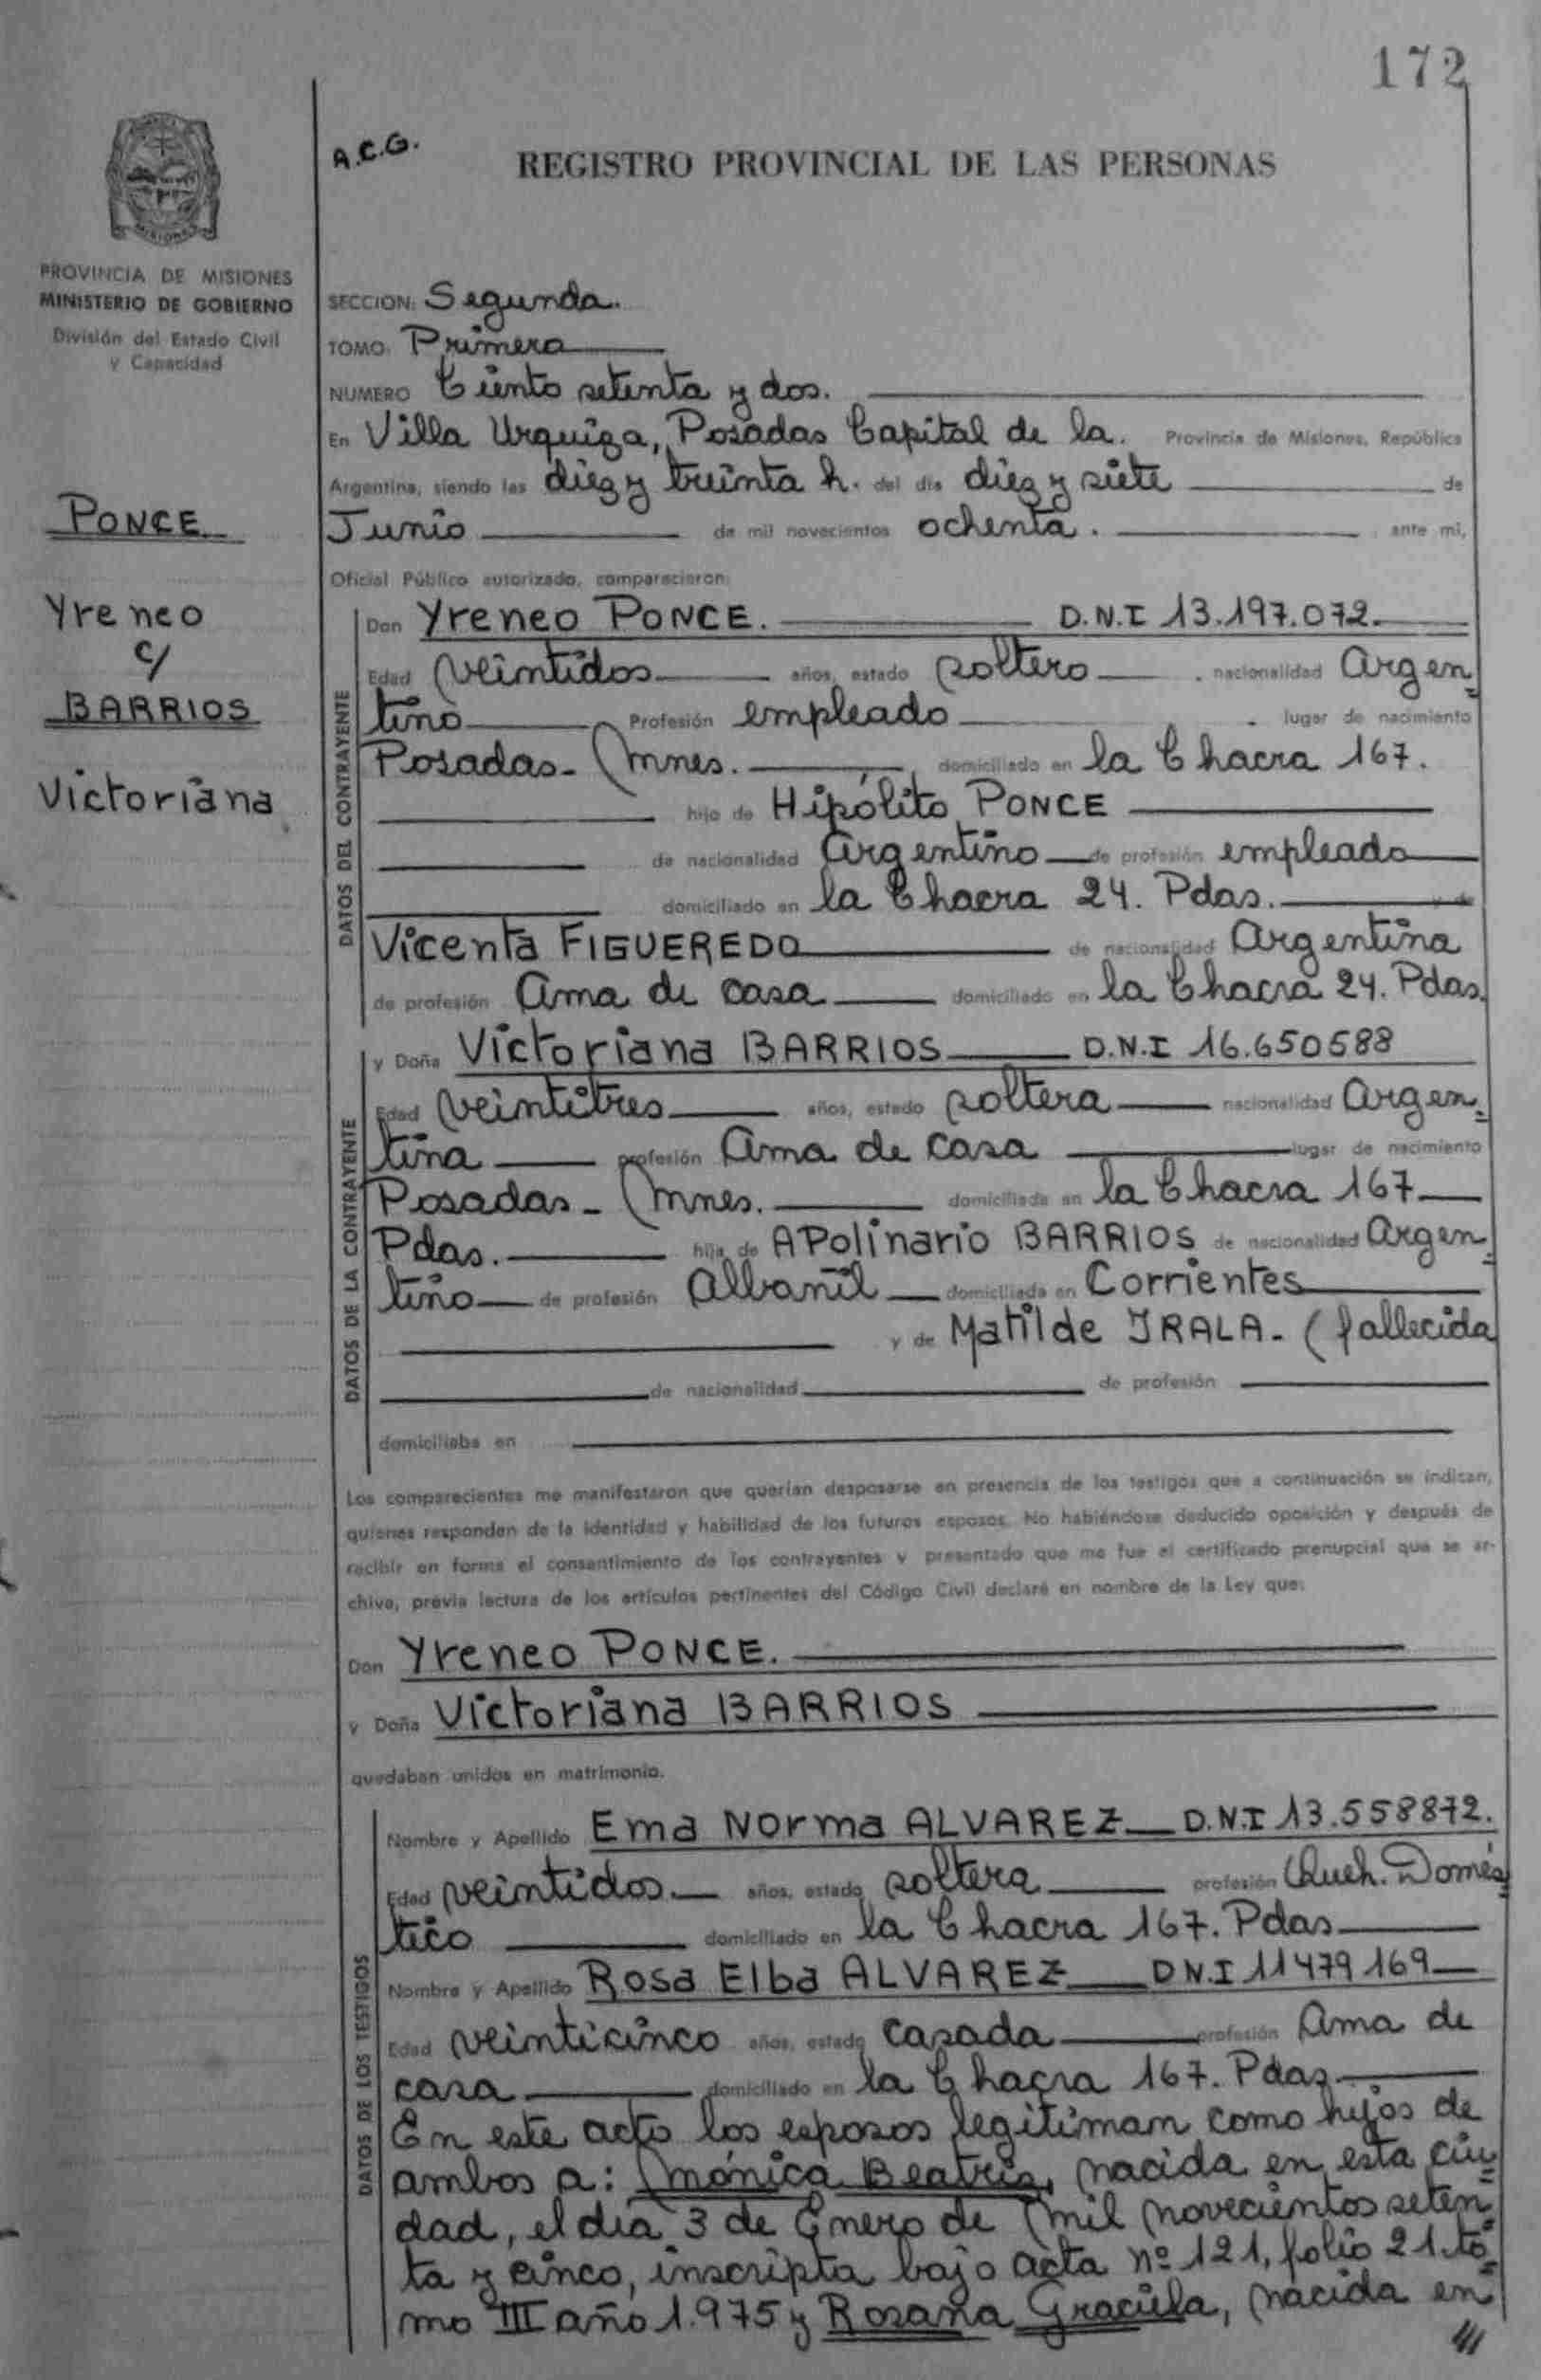 172
A.C.G.
REGISTRO PROVINCIAL DE LAS PERSONAS
MISIONES
PROVINCIA DE MISIONES
MINISTERIO DE GOBIERNO
División del Estado Civil
y Capacidad
PONCE
Yreneo
c/
BARRIOS
Victoriana
SECCION: Segunda.
TOMO: Primero
NUMERO Ciento setenta y dos.
En Villa Urquiza, Posadas Capital de la. Provincia de Misiones, República
Argentina, siendo las diez y treinta h. del día diez y siete de
Junio de mil novecientos ochenta. ante mi,
Oficial Público autorizado, comparecieron:
DATOS DEL CONTRAYENTE
Don Yreneo PONCE. D.N.I 13.197.072.
Edad veintidos años, estado soltero nacionalidad Argen
tino Profesión empleado lugar de nacimiento
Posadas - Mnes. domiciliado en la Chacra 167.
hijo de Hipólito PONCE
de nacionalidad Argentino de profesión empleado
domiciliado en la Chacra 24. Pdas. y de
Vicenta FIGUEREDO de nacionalidad Argentina
de profesión Ama de casa domiciliado en la Chacra 24. Pdas.
DATOS DE LA CONTRAYENTE
y Doña Victoriana BARRIOS D.N.I 16.650588
Edad veintitres años, estado soltera nacionalidad Argen
tina profesión Ama de casa lugar de nacimiento
Posadas - Mnes. domiciliada en la Chacra 167
Pdas. hija de APolinario BARRIOS de nacionalidad Argen
tino de profesión Albañil domiciliado en Corrientes
y de Matilde IRALA - (fallecida
de nacionalidad de profesión
domiciliaba en
Los comparecientes me manifestaron que querían desposarse en presencia de los testigos que a continuación se indican,
quienes responden de la identidad y habilidad de los futuros esposos. No habiéndose deducido oposición y después de
recibir en forma el consentimiento de los contrayentes y presentado que me fue el certificado prenupcial que se ar-
chiva, previa lectura de los artículos pertinentes del Código Civil declaré en nombre de la Ley que:
Don Yreneo PONCE.
y Doña Victoriana BARRIOS
quedaban unidos en matrimonio.
DATOS DE LOS TESTIGOS
Nombre y Apellido Ema Norma ALVAREZ D.N.I 13.558872.
Edad veintidos. años, estado soltera profesión Queh. Domés
tico domiciliado en la Chacra 167. Pdas
Nombre y Apellido Rosa Elba ALVAREZ DN.I 11479169
Edad veinticinco años, estado casada profesión Ama de
casa domiciliado en la Chacra 167. Pdas
En este acto los esposos legitiman como hijos de
ambos a: Mónica Beatriz, nacida en esta ciu
dad, el día 3 de Enero de mil novecientos seten
ta y cinco, inscripta bajo acta nº 121, folio 21. to
mo III año 1.975 y Rosana Graciela, nacida en
///